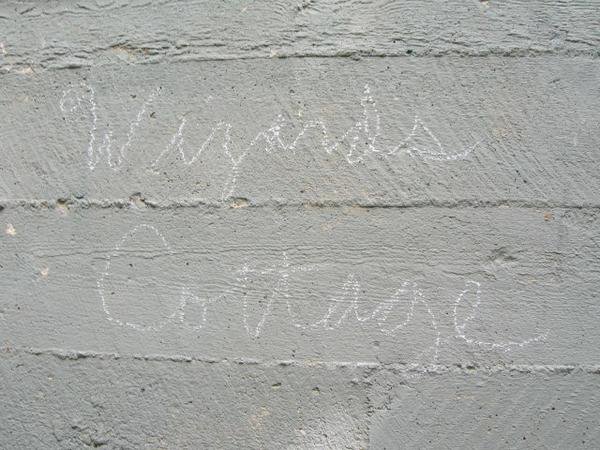 Wizards
Cottage